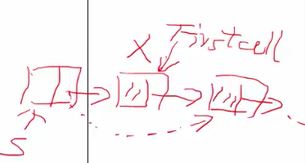 X Firstcell
S